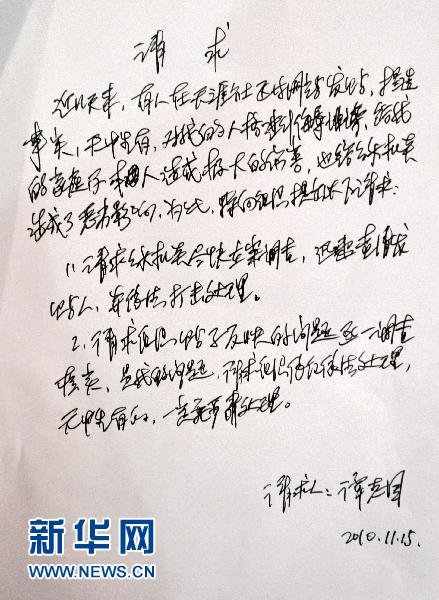 请 求
近几天来,有人在天涯社区等网站发帖,捏造
事实,无中生有,对我的人格进行侮辱诽谤,给我
的家庭和本人造成极大的伤害,也给
造成了恶劣影响,为此,特向组织提出如下请求:
1、请求 尽快立案调查,迅速查清发
帖人,并依法打击处理。
2、请求组织对帖子反映的问题逐一调查
核实,是我的问题,请求组织依纪依法处理,
无中生有的,一定要严肃处理。
请求人:谭志国
2010.11.15.
新华网
WWW.NEWS.CN